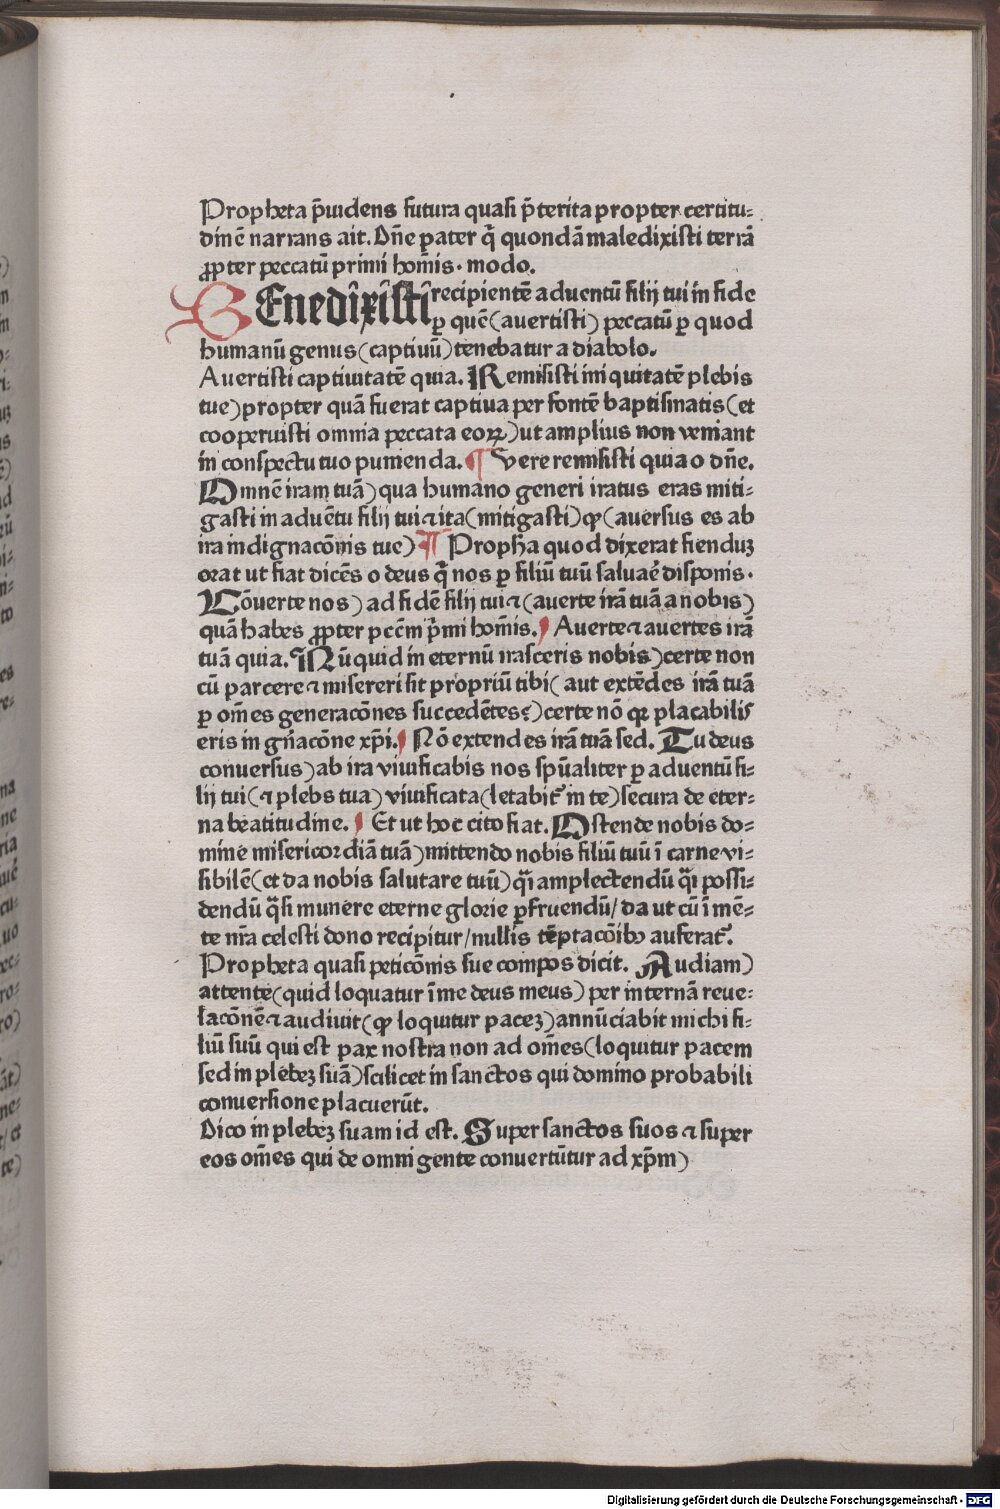 Propheta p̄uidens futura quasi p̄terita propter certitu-
dinē narrans ait. Dn̄e pater q̄ quondā maledixisti terrā
ꝓpter peccatū primi hom̄is. modo.
BEnedixisti recipientē aduentū filij tui in fide
ꝑ quē (auertisti) peccatū ꝑ quod
humanū genus (captiuū) tenebatur a diabolo.
Auertisti captiuitatē quia. Remisisti iniquitatē plebis
tue) propter quā fuerat captiua per fontē baptismatis (et
cooperuisti omnia peccata eoꝝ) ut amplius non veniant
in conspectu tuo punienda. ¶ Vere remisisti quia o dn̄e.
Omnē iram tuā) qua humano generi iratus eras miti-
gasti in aduētu filij tui ⁊ ita (mitigasti) ꝙ (auersus es ab
ira indignacōnis tue) ¶ Prophā quod dixerat fienduꝫ
orat ut fiat dicēs o deus q̄ nos ꝑ filiū tuū saluaē disponis.
Cōuerte nos) ad fidē filij tui ⁊ (auerte irā tuā a nobis)
quā habes ꝓpter pccm̄ p̄mi hom̄is. Auerte ⁊ auertes irā
tuā quia. Nūquid in eternū irasceris nobis) certe non
cū parcere ⁊ misereri sit propriū tibi (aut extēdes irā tuā
ꝑ om̄es generacōnes succedētes) certe nō qꝛ placabilis
eris in gn̄acōne xp̄i. Nō extendes irā tuā sed. Tu deus
conuersus) ab ira viuificabis nos spūaliter ꝑ aduentū fi-
lij tui (⁊ plebs tua) viuificata (letabit᷑ in te) secura de eter-
na beatitudine. Et ut hoc cito fiat. Ostende nobis do-
mine misericordiā tuā) mittendo nobis filiū tuū ī carne vi-
sibilē (et da nobis salutare tuū) q̄i amplectendū q̄i possi-
dendū q̄si munere eterne glorie ꝑfruendū / da ut cū ī mē-
te nr̄a celesti dono recipitur / nullis tēptacōibꝰ auferat᷑.
Propheta quasi peticōnis sue compos dicit. Audiam)
attente (quid loquatur ī me deus meus) per internā reue-
lacōnē ⁊ audiuit (ꝙ loquitur paceꝫ) annūciabit michi fi-
liū suū qui est pax nostra non ad om̄es (loquitur pacem
sed in plebeꝫ suā) scilicet in sanctos qui domino probabili
conuersione placuerūt.
Dico in plebeꝫ suam id est. Super sanctos suos ⁊ super
eos om̄es qui de omni gente conuertūtur ad xp̄m)
Digitalisierung gefördert durch die Deutsche Forschungsgemeinschaft - DFG